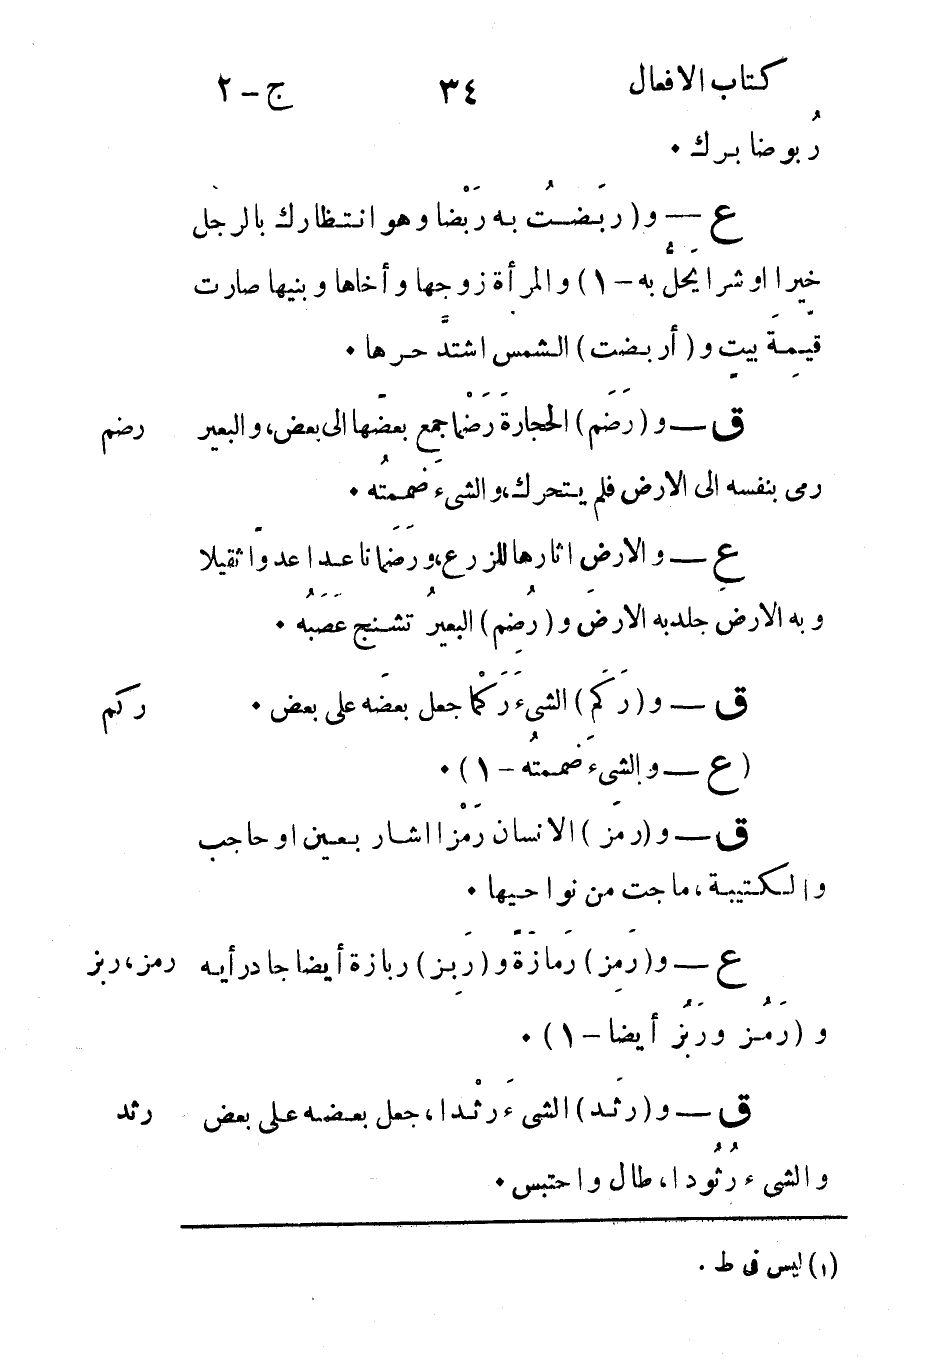 كتاب الافعال ٣٤ ج-٢
رُبوضا برك ٠
ع — و(ربَضتُ به رَبْضا وهو انتظارك بالرجل
خيرا او شرا يَحُلُّ به -١) والمرأة زوجها وأخاها وبنيها صارت
قيّمةَ بيتٍ و(أربضت) الشمس اشتدَّ حرها ٠
ق — و(رَضَم) الحجارةَ رَضْما جمَع بعضَها الى بعض، والبعير رضم
رمى بنفسه الى الارض فلم يتحرك، والشىء ضممتُه ٠
ع — والارضِ اثارها للزرع، ورَضَمانا عدا عدوّا ثقيلا
وبه الارض جلدبه الارضَ و(رُضِم) البعيرُ تشنج عَصَبُه ٠
ق — و(رَكَم) الشىءَ رَكْما جعل بعضَه على بعض ٠ ركم
(ع — والشىءَ ضممتُه -١) ٠
ق — و(رمَز) الانسان رَمْزا اشار بعين او حاجب
والكتيبة، ماجت من نواحيها ٠
ع — و(رَمِز) رَمازَةً و(رَبِز) ربازة أيضا جادرأيه رمز، ربز
و (رَمُز ورَبُز أيضا -١) ٠
ق — و(رثَد) الشىءَ رثْدا، جعل بعضه على بعض رثد
والشىء رُثُودا، طال واحتبس ٠
(١) ليس فى ط ٠